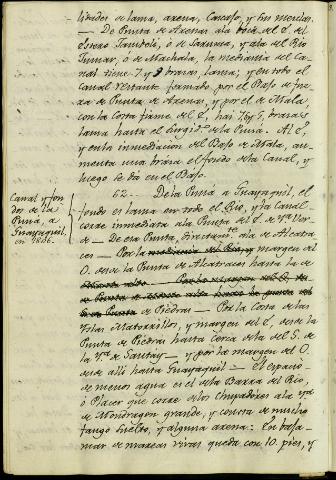 lidades de lama, arena, Cascajo, y sus mezclas.
— De Punta de Arenas á la boca del S. del
Estero Jambelí, ó de Sarauca, y á la del Rio
Tumar, ó de Machala, la mediania del Ca-
nal tiene 7 y 8 brazas, lama; y en todo el
Canal restante formado por el Bajo de fue-
ra de Punta de Arenas, y por el de Mala,
con la Costa firme del E, hai 7, 6 y 5, brazas
lama hasta el Surgid.º de la Puná. Al E,
y en la inmediacion del Bajo de Mala, au-
menta una braza el fondo de la Canal, y
luego se dá en el Bajo.
Canal y fon-
dos de la
Puná á
Guayaquil,
en 1806.
62.. De la Puná á Guayaquil, el
fondo es lama en todo el Rio, y la Canal
corre inmediata á la Punta del S. de Y.ª Ver-
de — De esa Punta, directam.te á la de Alcatra-
ces — Por la mediania del Rio, y margen del
O. desde la Punta de Alcatraces hasta la de
de Piedras — Por la Costa de las
Islas Matorrillos, y margen del E, desde la
Punta de Piedras hasta cerca de la del S. de
la Y.ª de Santay — y por la margen del O.
desde alli hasta Guayaquil — El espacio
de menos agua es el de la Barra del Rio,
ó Placer que corre de los Chupadores á la Y.ª
de Mondragon grande, y consta de mucho
fango suelto, y alguna arena: En baja-
mar de mareas vivas queda con 10. pies, y